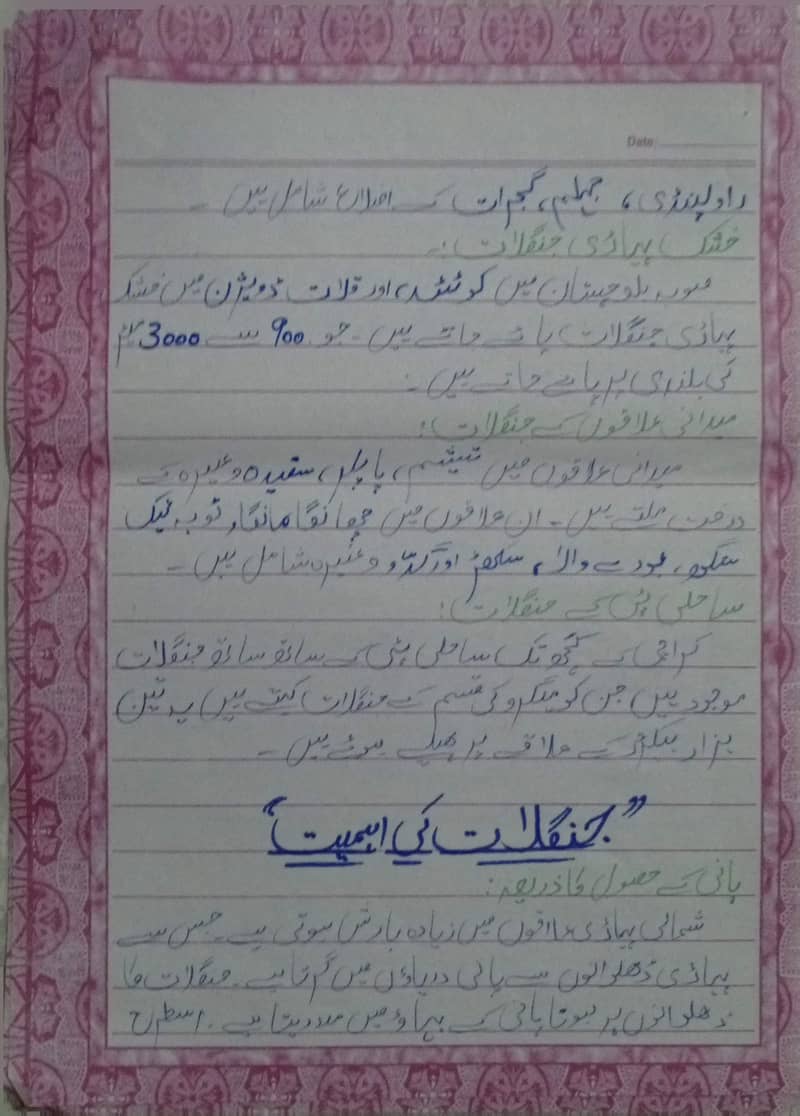 Date:
راولپنڈی، جہلم، گجرات کے اضلاع شامل ہیں -
خشک پہاڑی جنگلات :-
صوبہ بلوچستان میں کوئٹہ، اور قلات ڈویژن میں خشک
پہاڑی جنگلات پائے جاتے ہیں - جو 900 سے 3000 میٹر
کی بلندی پر پائے جاتے ہیں -
میدانی علاقوں کے جنگلات :
میدانی علاقوں میں شیشم، پاپلر، سفیدہ وغیرہ کے
درخت ملتے ہیں - ان علاقوں میں چھانگا مانگا، ٹوبہ ٹیک
سنگھ، بورے والا، سکھر اور گدو وغیرہ شامل ہیں -
ساحلی پٹی کے جنگلات :
کراچی کے کچھ تک ساحلی پٹی کے ساتھ ساتھ جنگلات
موجود ہیں جن کو مینگرو کی قسم کے جنگلات کہتے ہیں یہ تین
ہزار ہیکٹر کے علاقے پر پھیلے ہوئے ہیں -
"جنگلات کی اہمیت"
پانی کے حصول کا ذریعہ :
شمالی پہاڑی علاقوں میں زیادہ بارش ہوتی ہے - جس سے
پہاڑی ڈھلوانوں سے پانی دریاؤں میں گرتا ہے - جنگلات کا
ڈھلوانوں پر ہونا پانی کے بہاؤ میں مدد دیتا ہے - اسطرح